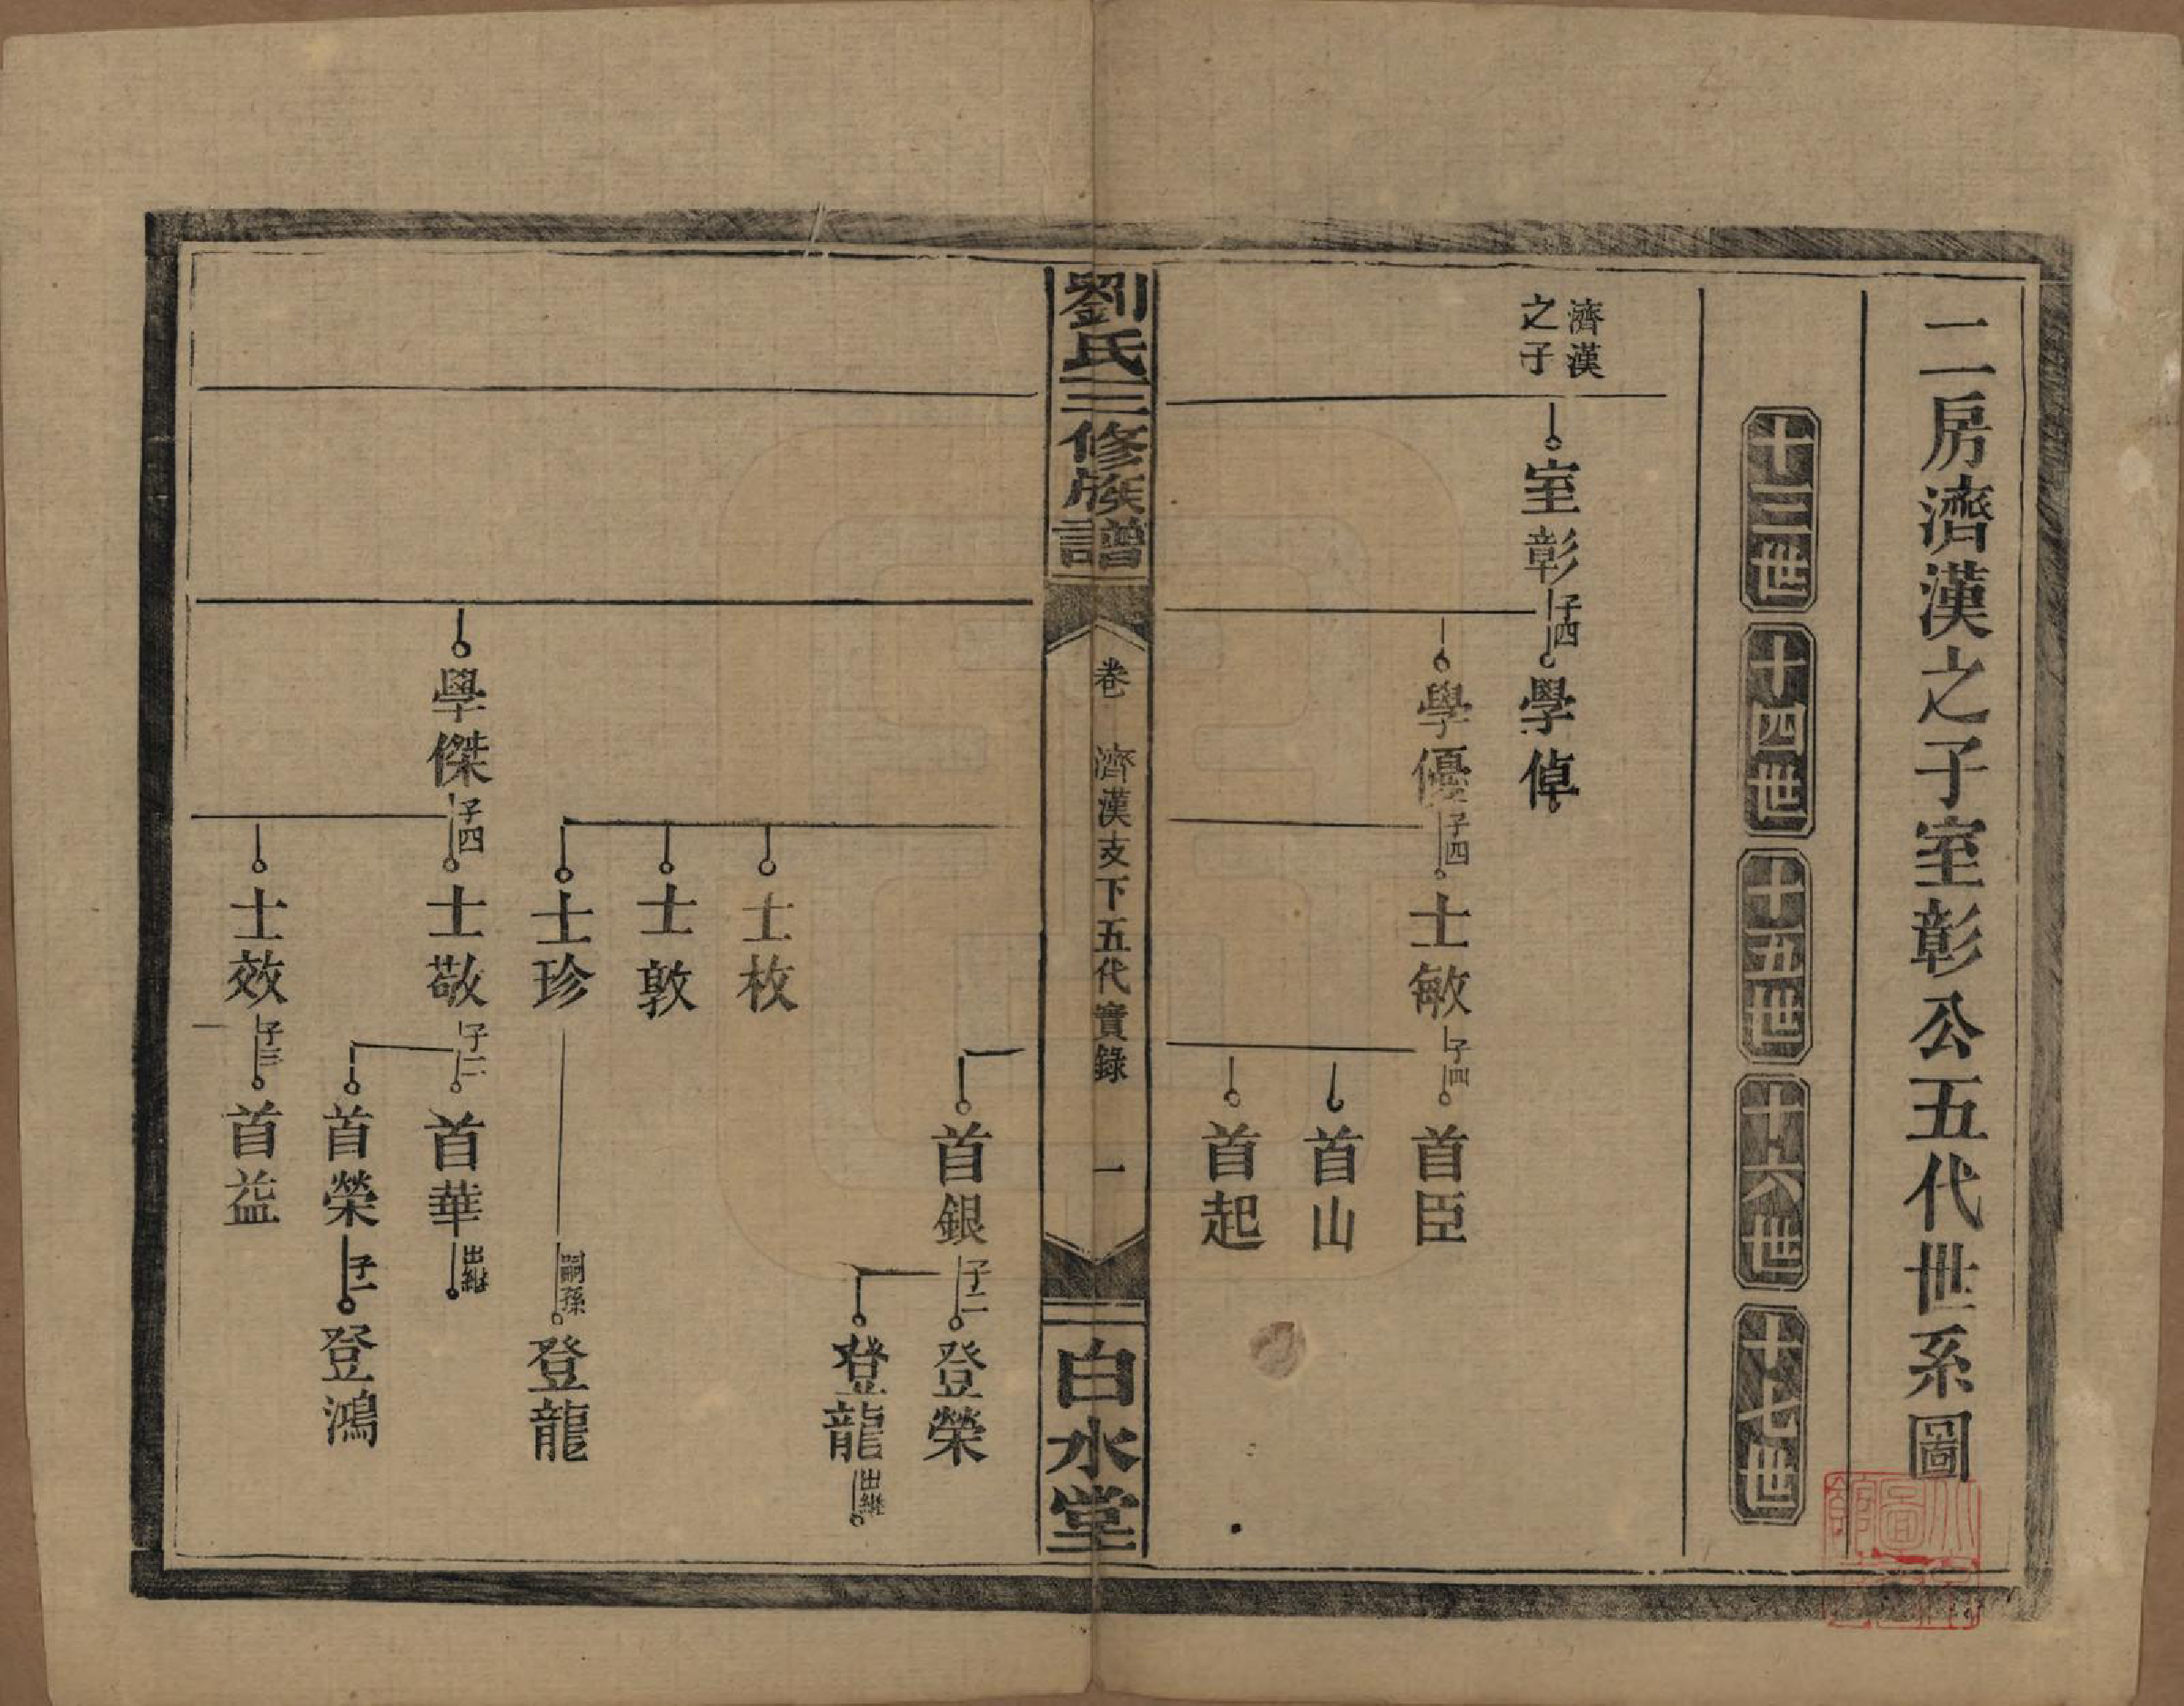 二房濟漢之子室彰公五代世系圖
十三世
十四世
十五世
十六世
十七世
濟漢
之子
室彰
子四
學倬
學優
子四
士敏
子四
首臣
首山
首起
劉氏三修族譜
卷
濟漢支下五代實錄
一
白水堂
首銀
子二
登榮
登龍
出繼
士枚
士敦
士珍
嗣孫
登龍
學傑
子四
士敬
子二
首華
出繼
首榮
子一
登鴻
士效
子三
首益